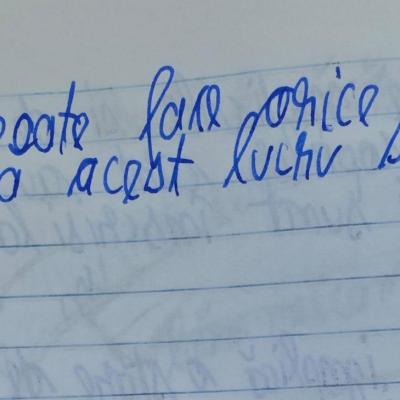 poate face orice
a acest lucru